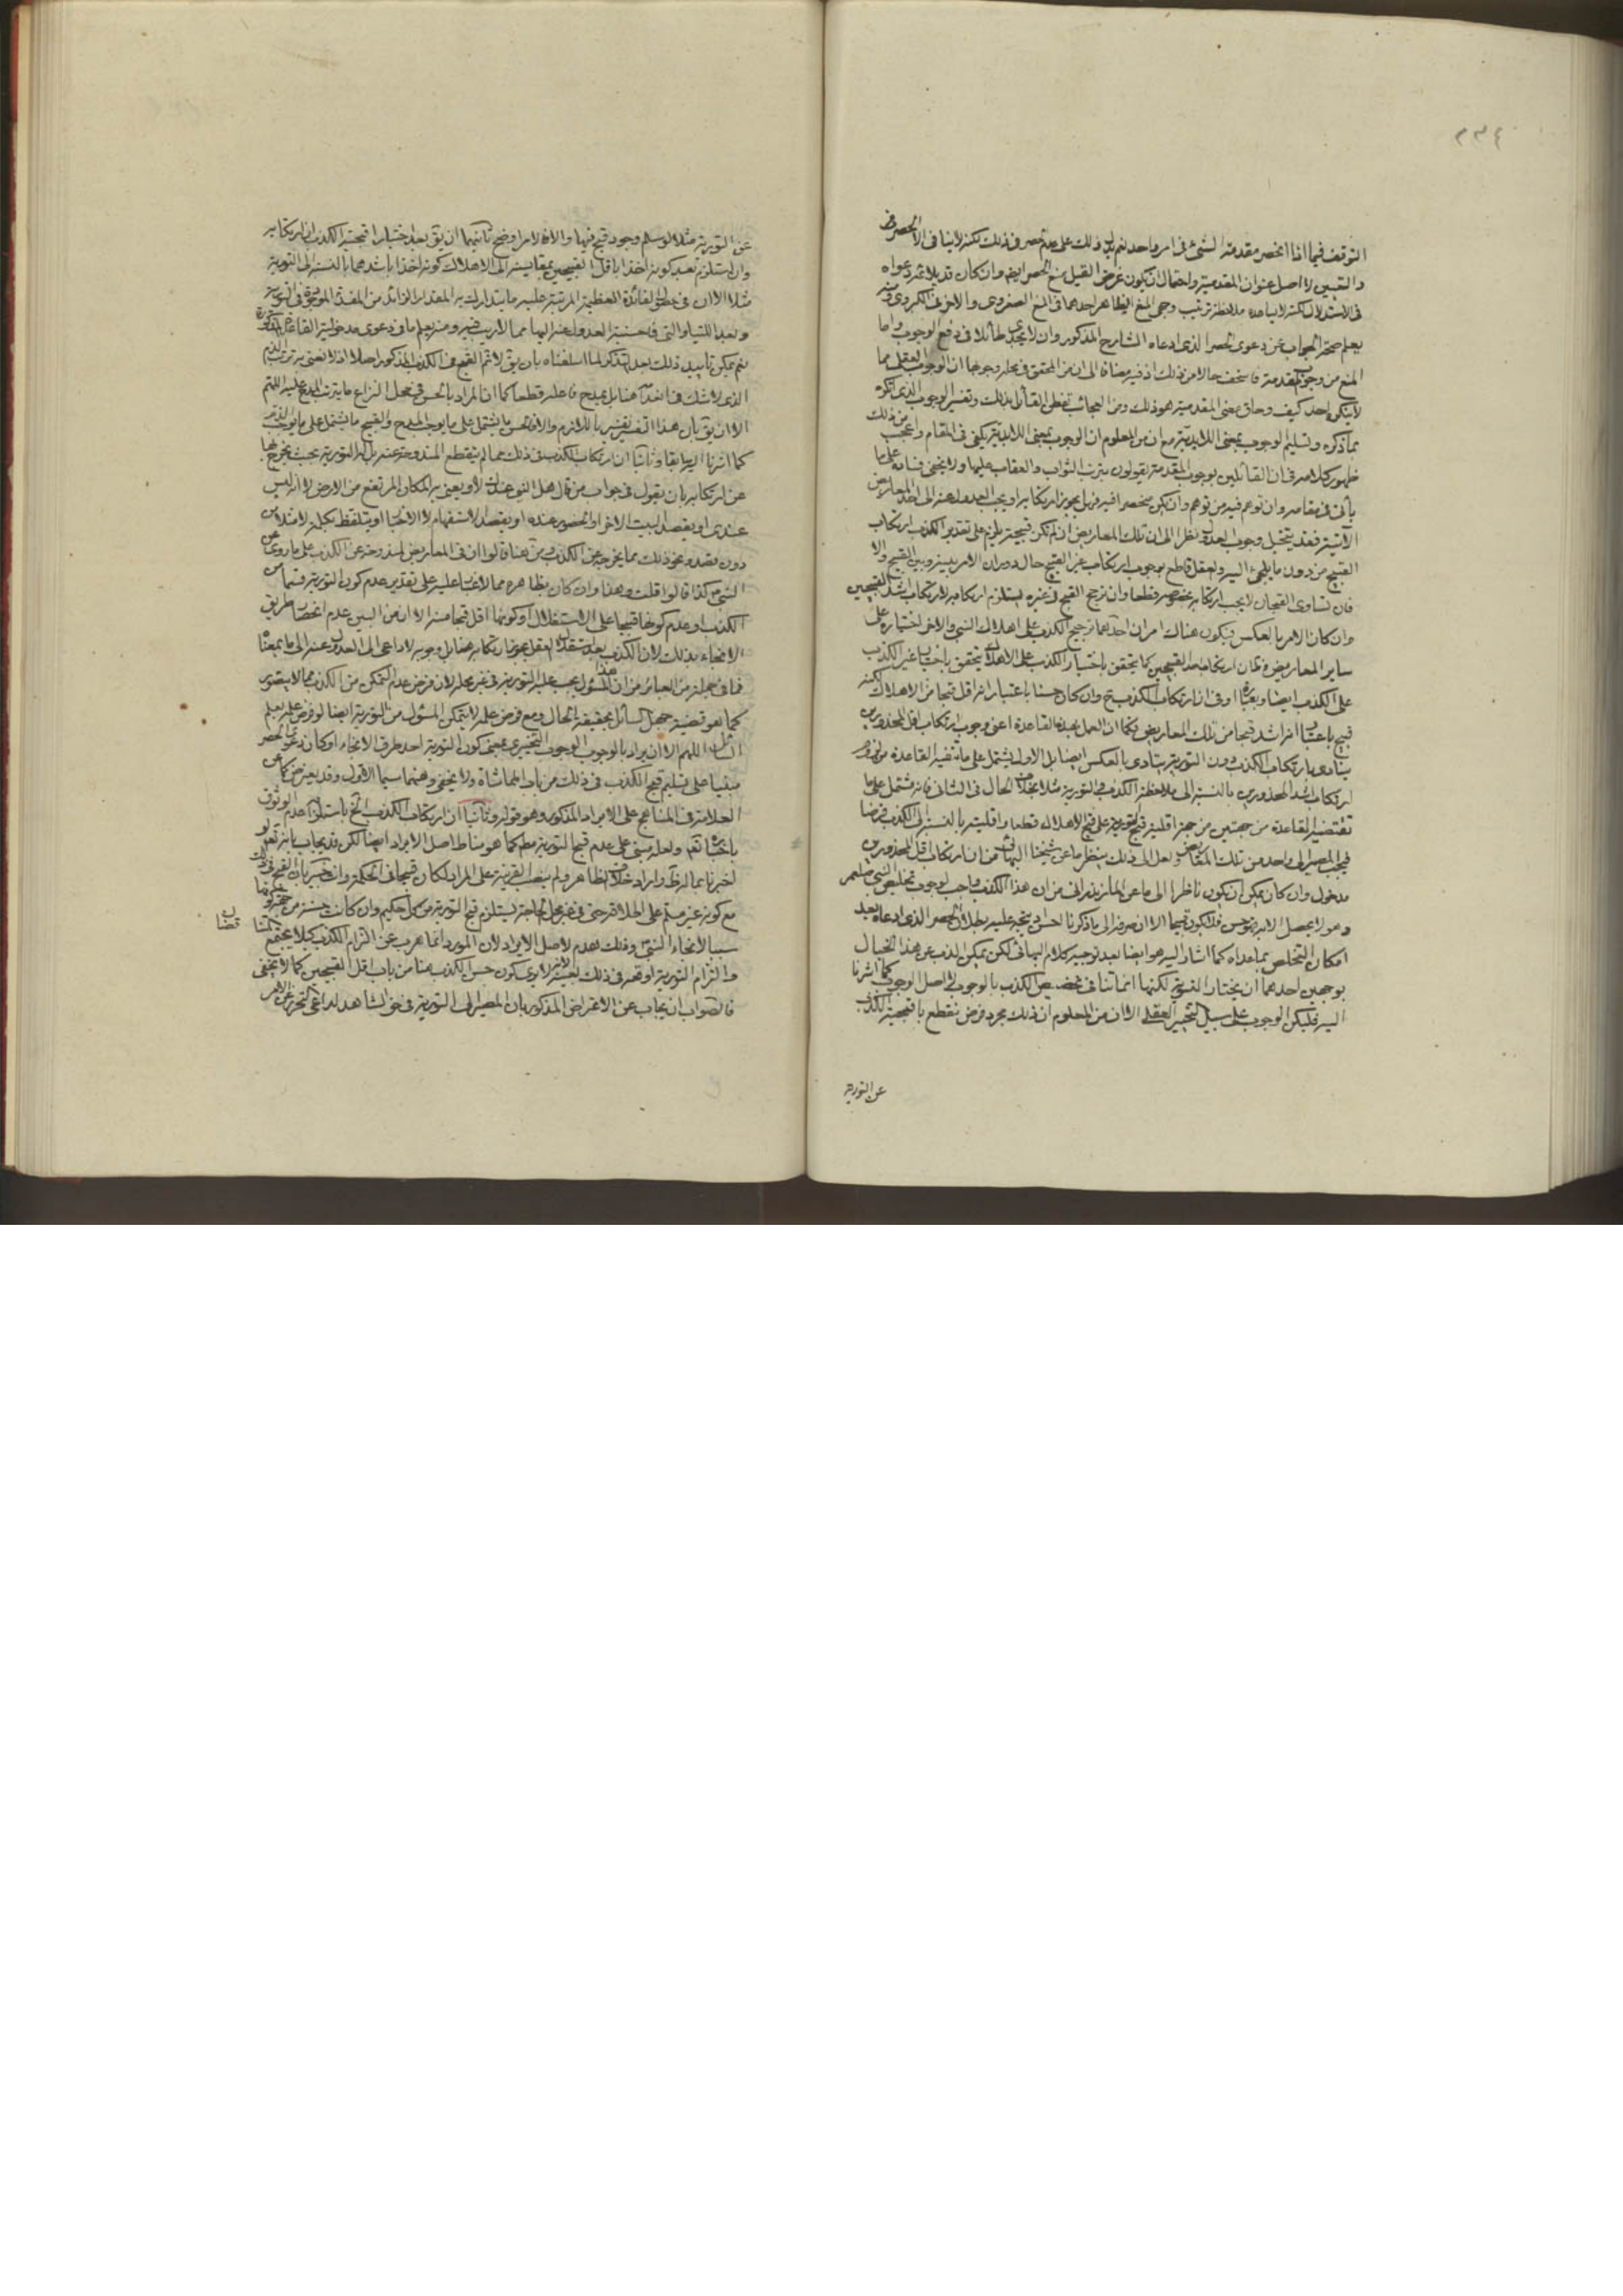 ٢٣٤
التوقف فيما اذا انحصر مقدمة الشئ في امر واحد نعم يدل ذلك على عدم حصر في ذلك لكنه لا ينافي الحصر في
والتبيين لا اصل عنوان المقدمية واحتمال ان يكون غرض القيل منع الحصر ايضا وان كان قد يلائمه دعواه
في الاستدلال لكنه لا يساعده ملاحظة ترتيب وجهي المنع اذ الظاهر احدهما في المنع الصغروي والاخر في الكبروي ومنه
يعلم صحة الجواب عن دعوى الحصر الذي ادعاه الشارح المذكور وان لا يجدي طائلا في دفع الوجوب واما
المنع من وجوب المقدمة فاسخف حالا من ذلك اذ فيه مضافا الى ان من المحقق في محله وجوبها ان الوجوب العقلي مما
لا ينكره احد كيف وحاق معنى المقدمية هو ذلك ومن العجائب تفطن القائل بذلك وتفسير الوجوب الذي انكره
بما ذكره وتسليم الوجوب بمعنى اللابدية مع ان من المعلوم ان الوجوب بمعنى اللابدية يكفي في المقام واعجب من ذلك
ظهور كلامه في ان القائلين بوجوب المقدمة يقولون بترتب الثواب والعقاب عليها ولا يخفى فساده على ما
يأتي في مقامه وان توهم فيه من توهم وان لم يكن منحصرا فيه فهل يجوز ارتكابه او يجب العدول عنه الى احد المعاريض
الآتية فقد يتخيل وجوب العدول نظرا الى ان تلك المعاريض ان لم تكن قبيحة يلزم على تقدير الكذب ارتكاب
القبيح من دون ما يلجئ اليه والعقل قاطع بوجوب ارتكاب غير القبيح حال دوران الامر بينه وبين القبيح والا
فان تساوى القبحان لا يجب ارتكابه بخصوصه قطعا وان ترجح القبح في غيره يستلزم ارتكابه لارتكاب اشد القبيحين
وان كان الامر بالعكس فيكون هناك امران احدهما ترجيح الكذب على اهلاك النبي والاخر اختياره على
ساير المعاريض فكما ان ارتكاب احد القبيحين كما يتحقق باختيار الكذب على الاهلاك يتحقق باختيار غير الكذب
على الكذب ايضا وبعبارة اوفى ان ارتكاب الكذب وان كان حسنا باعتبار انه اقل قبحا من الاهلاك لكنه
قبيح باعتبار انه اشد قبحا من تلك المعاريض فكما ان العمل بهذه القاعدة اعني وجوب ارتكاب اقل المحذورين
يتادى بارتكاب الكذب دون التورية يتادى بالعكس ايضا بل الاول يشتمل على ما تنفيه القاعدة
ارتكاب اشد المحذورين بالنسبة الى ملاحظة الكذب والتورية مثلا بخلاف الحال في الثاني فانه مشتمل على ما
تقتضيه القاعدة من جهتين من جهة اقلية قبح التورية على قبح الاهلاك قطعا واقليته بالنسبة الى الكذب فرضا
فيجب المصير الى واحد من تلك المعاريض ولعل الى ذلك ينظر ما عن شيخنا البهائي من ان ارتكاب اقل المحذورين
مدخول وان كان يمكن ان يكون ناظرا الى ما عن المازندراني من ان هذا الكذب واجب لوجوب تخليص النبي
وهو لا يحصل الا به فهو حسن فلا يكون قبيحا الا ان صرفه الى ما ذكرنا احسن ويتجه عليه بطلان الحصر الذي ادعاه بعد
امكان التخلص بما عداه كما اشار اليه هو ايضا بعد توجيه كلام البهائي لكن يمكن الذب عن هذا الخيال
بوجهين احدهما ان يختار التسوية لكنها انما تنافي تخصيص الكذب بالوجوب لا اصل الوجوب كما اشرنا
اليه فليكن الوجوب على سبيل التخيير العقلي الا ان من المعلوم ان ذلك مجرد فرض نقطع باقبحية الكذب
عن التورية
عن التورية مثلا لو سلم وجود قبح فيها والا فالامر اوضح ثانيهما ان يق بعد اختيار اقبحية الكذب ان ارتكابه
وان استلزم بعد كونه اخذا باقل القبيحين بمقايسته الى الاهلاك كونه اخذا باشدهما بالنسبة الى التورية
مثلا الا ان في ذلك الفائدة العظيمة المرتبة عليه ما يتدارك به المقدار الزائد من المفسدة الموجودة في
وبعد اللتيا والتي فاحسنية العدول عنه اليها مما لا ريب فيه ومنه يعلم ما في دعوى مدخولية القاعدة المذكورة
نعم يمكن تأييد ذلك بعد التذكر لما اسلفناه بان يق لا ثم القبح من الكذب المذكور اصلا اذ لا نعني به ترتب الذم
الذي لا شك في انعدامه هنا بل يمدح فاعله قطعا كما ان المراد بالحسن في محل النزاع ما يترتب المدح عليه اللهم
الا ان يق بان هذا تفسير باللازم والا فالحسن ما يشتمل على ما يوجب المدح والقبيح ما يشتمل على ما يوجب الذم
كما اشرنا اليه سابقا وثانيا ان ارتكاب الكذب في ذلك مما لم ينقطع المندوحة عنه بل له التورية بحيث يخرج بها
عن ارتكابه بان يقول في جواب من قال هل النبي عندك لا ويعني به المكان المرتفع من الارض لا انه ليس
عندي او يقصد البيت الاخر او الحضور عنده او يقصد الاستفهام لا الاخبار او يتلفظ بكلمة لا مثلا من
دون قصد ونحو ذلك مما يخرجه عن الكذب ومن هنا قالوا ان في المعاريض لمندوحة عن الكذب على ما روي عن
النبي ص كذا قالوا قلت وهذا وان كان بظاهره مما لا غبار عليه على تقدير عدم كون التورية قسما من
الكذب او عدم كونها قبيحا على الاستقلال او كونها اقل قبحا منه الا ان من البين عدم انحصار طريق
الانجاء بذلك لان الكذب بعد استقلال العقل بجواز ارتكابه هنا بل وجوبه لا داعي الى العدول عنه الى ما بمعناه
فما في جملة من العبائر من ان المسئول يجب عليه التورية في غير محله لان فرض عدم التمكن من الكذب مما لا يتصور
كما هو قضية جهل السائل بحقيقة الحال ومع فرض علمه لا يتمكن المسئول من التورية ايضا لو فرض علمه بعلم
السائل اللهم الا ان يراد بالوجوب الوجوب التخييري بمعنى كون التورية احد طرق الانجاء او كان دعوى الحصر
مبنيا على تسليم قبح الكذب في ذلك من باب المماشاة ولا يخفى وهنهما سيما الاول وقد يعترض كما عن
العلامة في المناهج على الايراد المذكور وهو قوله وثانيا ان ارتكاب الكذب الخ باستلزامه عدم الوثوق
باخباره تعم ولعله مبني على عدم قبح التورية مط كما هو مناط اصل الايراد ايضا لكن قد يجاب بانه تعم لو
اخبرنا بما له ظ واراد خلاف الظاهر ولم ينصب القرينة على المراد لكان قبيحا في الحكمة وانت خبير بان القبح في ذلك
مع كونه غير مسلم على اطلاقه حتى في غير محل الحاجة ليستلزم قبح التورية من كل حكيم وان كانت حسنة من جهة كونها
سببا لانجاء النبي وذلك هدم لاصل الايراد لان المورد انما هرب عن التزام الكذب كيلا يجتمع المتنا
قضان
والتزام التورية اوقعه في ذلك بعينه الا ترى بكون حسن الكذب هنا من باب اقل القبيحين كما لا يخفى
فالصواب ان يجاب عن الاعتراض المذكور بان المصير الى التورية في حق الشاهد لداعي التحرز عن الامر